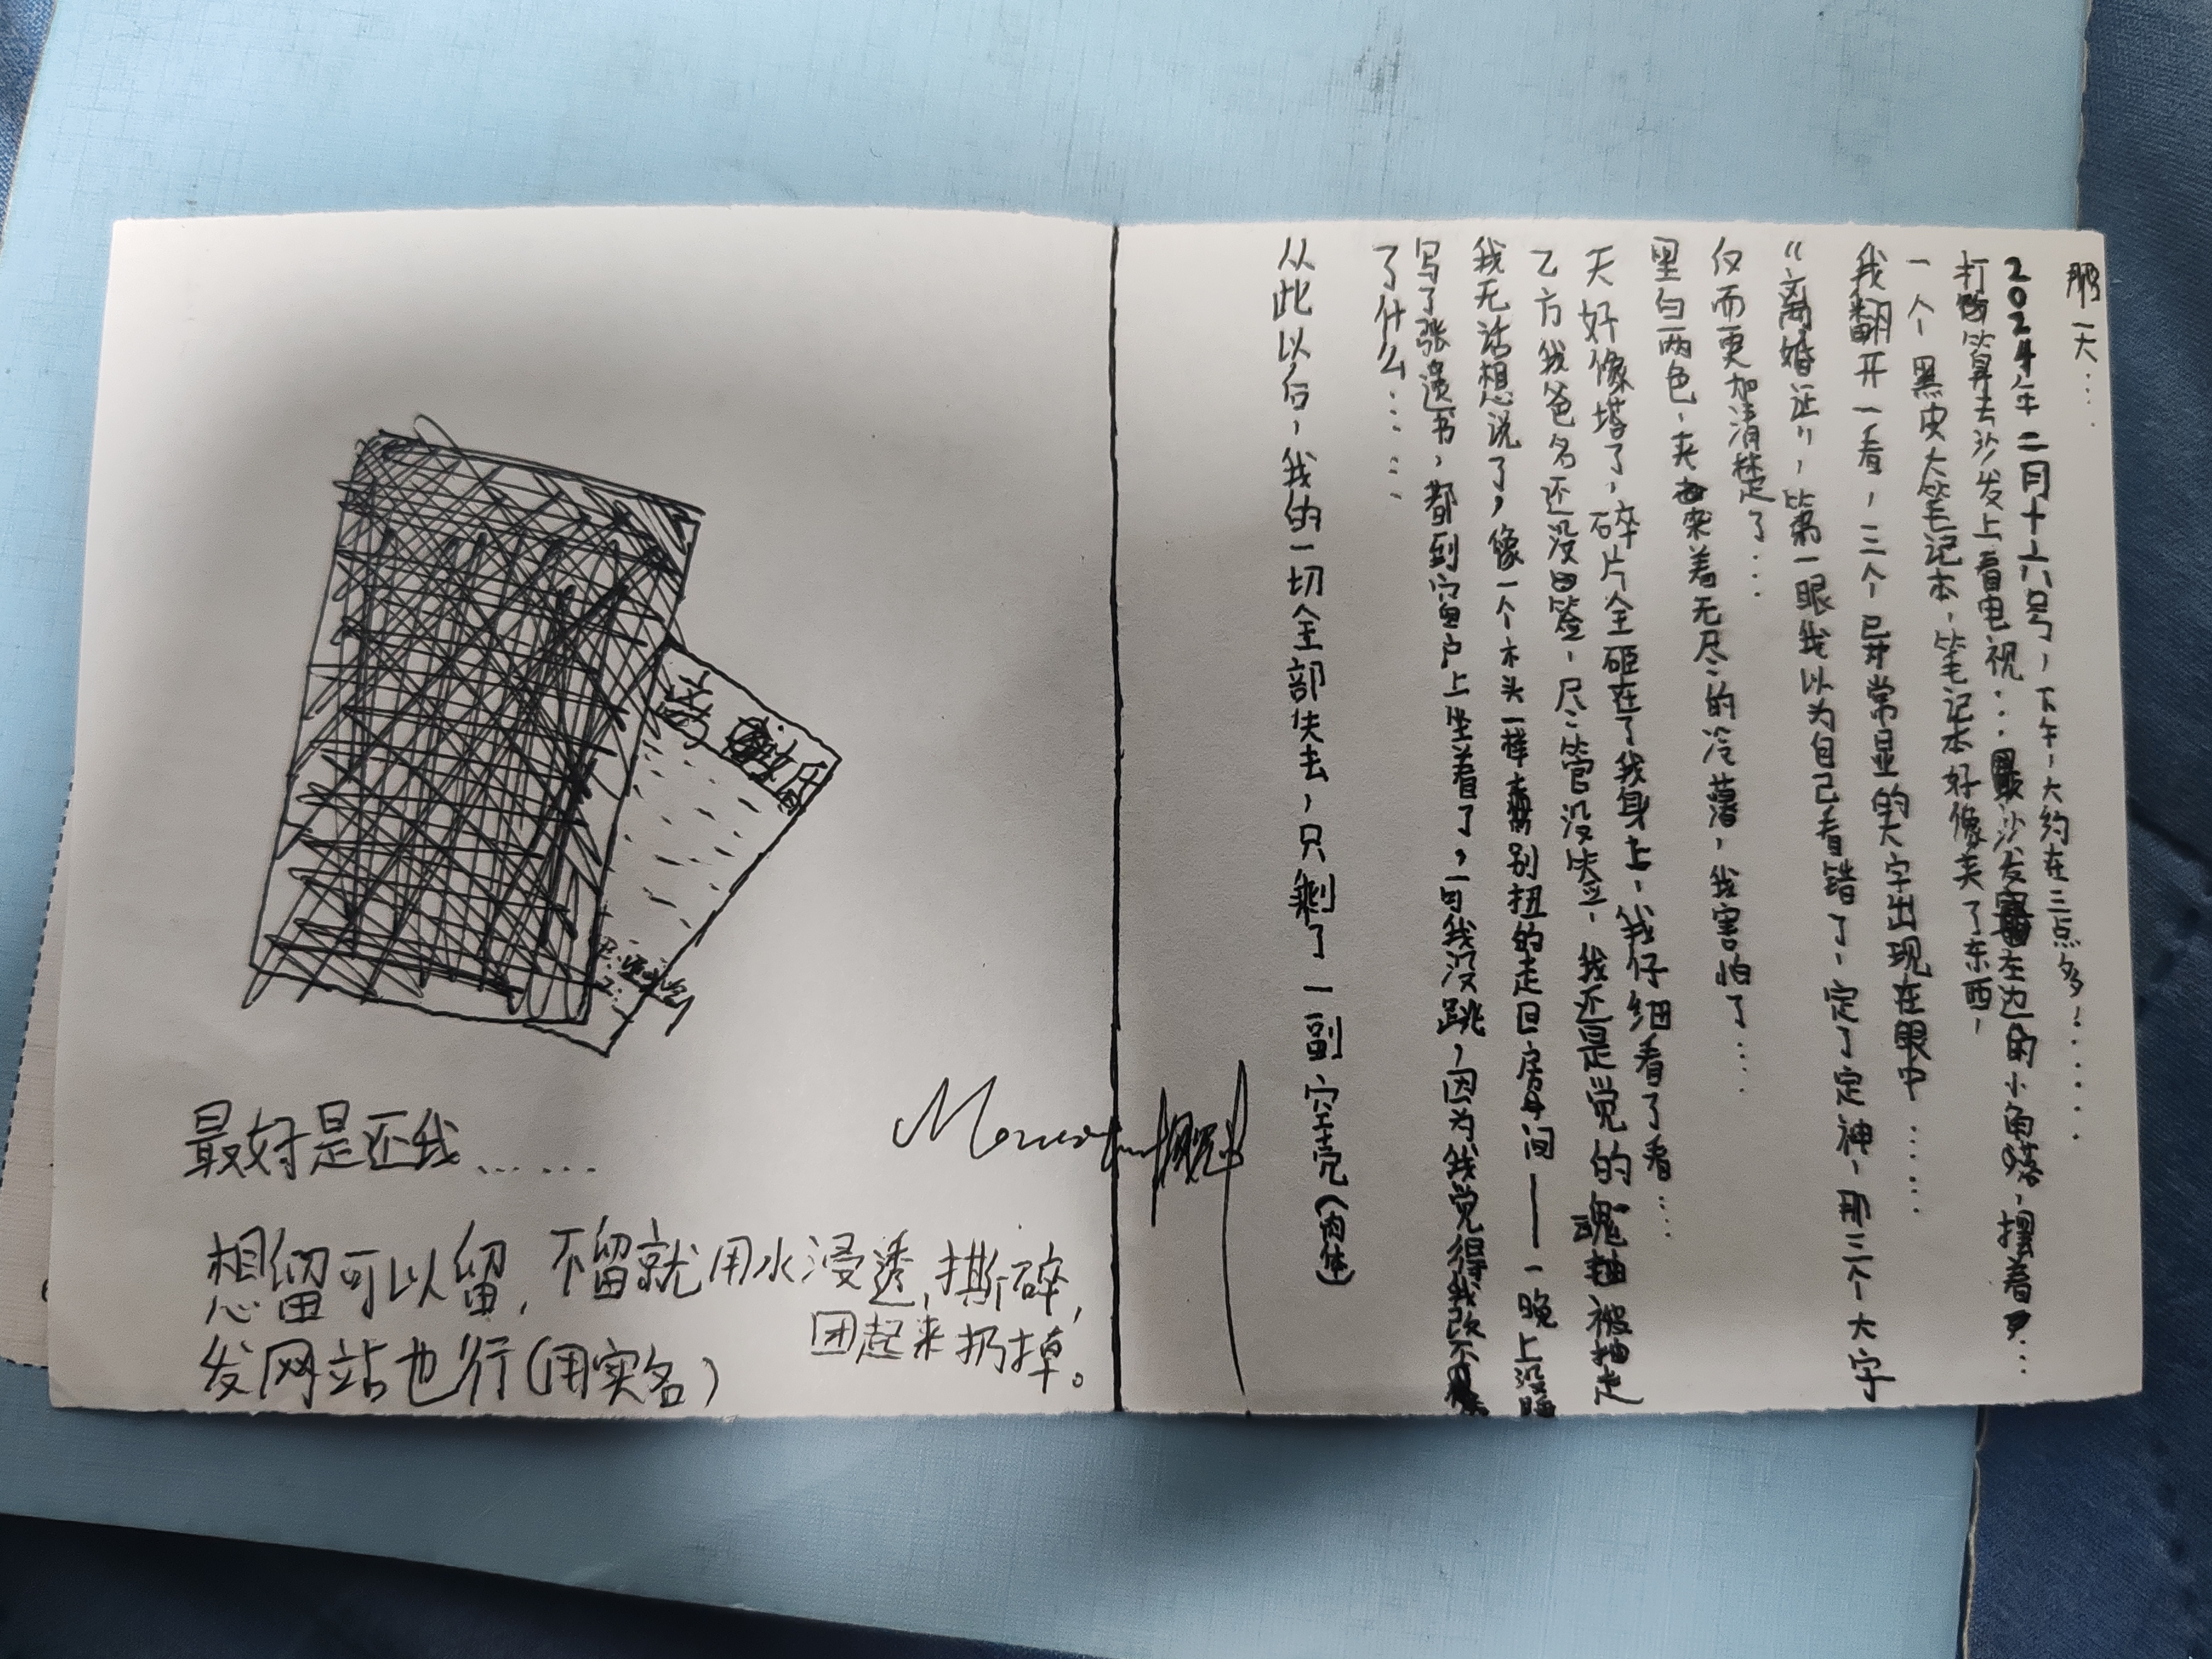 那一天……
2024年二月十六号，下午，大约在三点多！……
打算去沙发上看电视……沙发左边的小角落，摆着…
一个黑皮大笔记本，笔记本好像夹了东西，
我翻开一看，三个异常显的大字出现在眼中……
“离婚证”，第一眼我以为自己看错了，定了定神，那三个大字
仅而更加清楚了…
黑白两色，夹杂着无尽的冷落，我害怕了…
天好像塔了，碎片全砸在了我身上，我仔细看了看…
乙方我爸名还没签，尽管没失立，我还是觉的魂被抽走
我无话想说了，像一个木头一样别扭的走回房间——一晚上没睡
写了张遗书，都到窗户上坐着了，但我没跳，因为我觉得我改不
了什么……
从此以后，我的一切全部失去，只剩了一副空壳（肉体）
离婚
最好是还我……
想留可以留，不留就用水浸透，撕碎，
团起来扔掉。
发网站也行（用实名）